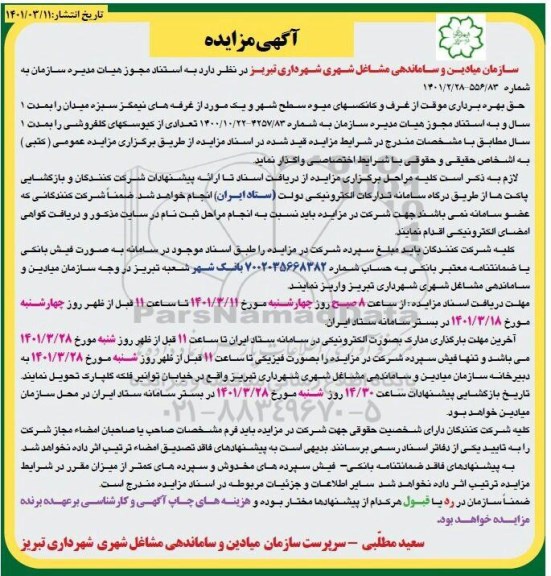 تاریخ انتشار:۱۴۰۱/۰۳/۱۱
آگهی مزایده
سازمان میادین و ساماندهی مشاغل شهری شهرداری تبریز در نظر دارد به استناد مجوز هیات مدیره سازمان به
شماره ۵۵۶/۸۳-۱۴۰۱/۲/۲۸
حق بهره برداری موقت از غرف و کانکسهای میوه سطح شهر و یک مورد از غرفه های نیمگز سبزه میدان را بمدت ۱
سال و به استناد مجوز هیات مدیره سازمان به شماره ۴۲۵۷/۸۳-۱۴۰۰/۱۰/۲۲ تعدادی از کیوسکهای گلفروشی را بمدت ۱
سال مطابق با مشخصات مندرج در شرایط مزایده قید شده در اسناد مزایده از طریق برگزاری مزایده عمومی ( کتبی )
به اشخاص حقیقی و حقوقی با شرایط اختصاصی واگذار نماید.
لازم به ذکر است کلیه مراحل برگزاری مزایده از دریافت اسناد تا ارائه پیشنهادات شرکت کنندگان و بازگشایی
پاکت ها از طریق درگاه سامانه تدارکات الکترونیکی دولت (ستاد ایران) انجام خواهد شد. ضمناً شرکت کنندگانی که
عضو سامانه نمی باشند جهت شرکت در مزایده باید نسبت به انجام مراحل ثبت نام در سایت مذکور و دریافت گواهی
امضای الکترونیکی اقدام نمایند.
کلیه شرکت کنندگان باید مبلغ سپرده شرکت در مزایده را طبق اسناد موجود در سامانه به صورت فیش بانکی
یا ضمانتنامه معتبر بانکی به حساب شماره ۷۰۰۲۰۳۵۶۶۸۳۸۲ بانک شهر شعبه تبریز در وجه سازمان میادین و
ساماندهی مشاغل شهری شهرداری تبریز واریز نمایند.
مهلت دریافت اسناد مزایده : از ساعت ۸ صبح روز چهارشنبه مورخ ۱۴۰۱/۳/۱۱ تا ساعت ۱۱ قبل از ظهر روز چهارشنبه
مورخ ۱۴۰۱/۳/۱۸ در بستر سامانه ستاد ایران.
آخرین مهلت بارگذاری مدارک بصورت الکترونیکی در سامانه ستاد ایران تا ساعت ۱۱ قبل از ظهر روز شنبه مورخ ۱۴۰۱/۳/۲۸
می باشد و تنها فیش سپرده شرکت در مزایده را بصورت فیزیکی تا ساعت ۱۱ قبل از ظهر روز شنبه مورخ ۱۴۰۱/۳/۲۸ به
دبیرخانه سازمان میادین و ساماندهی مشاغل شهری شهرداری تبریز واقع در خیابان توانیر فلکه گلپارک تحویل نمایند.
تاریخ بازگشایی پیشنهادات ساعت ۱۴/۳۰ روز شنبه مورخ ۱۴۰۱/۳/۲۸ در بستر سامانه ستاد ایران در محل سازمان
میادین خواهد بود.
کلیه شرکت کنندگان دارای شخصیت حقوقی جهت شرکت در مزایده باید فرم مشخصات صاحب یا صاحبان امضاء مجاز شرکت
را به تایید یکی از دفاتر اسناد رسمی برسانند. بدیهی است به پیشنهادهای فاقد تصدیق امضاء ترتیب اثر داده نخواهد شد.
به پیشنهادهای فاقد ضمانتنامه بانکی- فیش سپرده های مخدوش و سپرده های کمتر از میزان مقرر در شرایط
مزایده ترتیب اثر داده نخواهد شد. سایر اطلاعات و جزئیات مربوطه در اسناد مزایده مندرج است.
ضمناً سازمان در رد یا قبول هرکدام از پیشنهادها مختار بوده و هزینه های چاپ آگهی و کارشناسی برعهده برنده
مزایده خواهد بود.
سعید مطلّبی - سرپرست سازمان میادین و ساماندهی مشاغل شهری شهرداری تبریز
ParsNamadData
۰۲۱-۸۸۳۴۹۶۷۰-۵